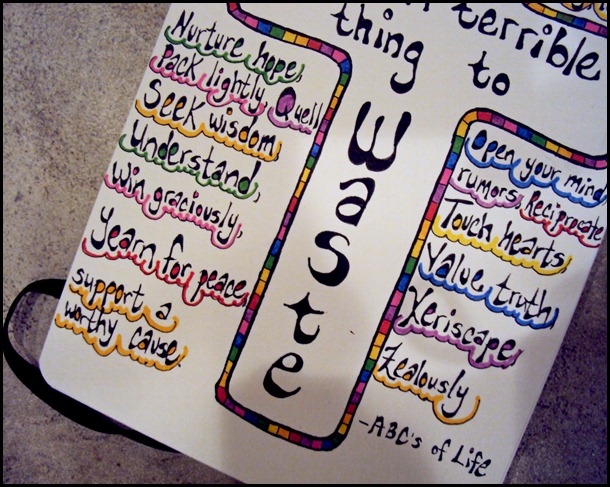 terrible
thing to
Waste
Nurture hope,
Pack lightly, Quell
Seek wisdom
Understand,
Win graciously,
Yearn for peace,
support a
worthy cause.
Open your mind
rumors, Reciprocate
Touch hearts,
Value truth,
Xeriscape
Zealously
-ABC's of Life